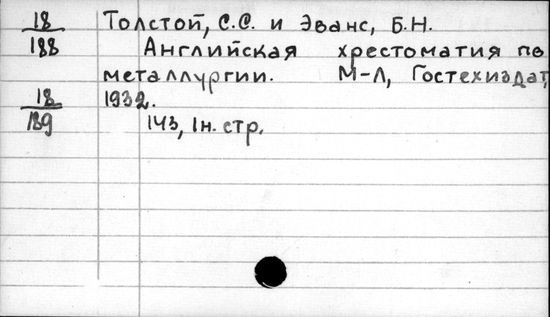 18/188 Толстой, С.С. и Эванс, Б.Н.
Английская хрестоматия по
металлургии. М-Л, Гостехиздат,
18/189 1932.
143, 1н. стр.